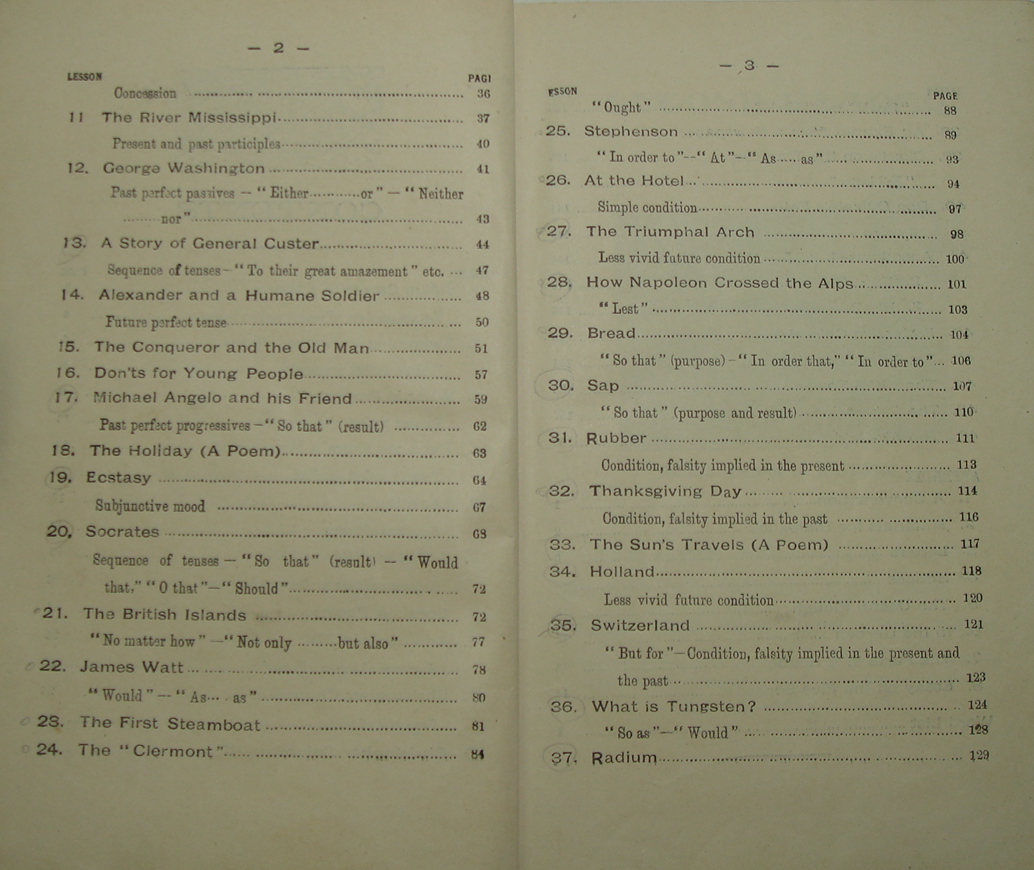 — 2 —
LESSON PAGE
Concession 36
11 The River Mississippi 37
Present and past participles 40
12. George Washington 41
Past perfect passives — “ Either............or ” — “ Neither
nor” 43
13. A Story of General Custer 44
Sequence of tenses – “ To their great amazement ” etc. 47
14. Alexander and a Humane Soldier 48
Future perfect tense 50
15. The Conqueror and the Old Man 51
16. Don'ts for Young People 57
17. Michael Angelo and his Friend 59
Past perfect progressives – “ So that ” (result) 62
18. The Holiday (A Poem) 63
19. Ecstasy 64
Subjunctive mood 67
20. Socrates 68
Sequence of tenses — “ So that ” (result) — “ Would
that,” “ O that ”—“ Should ” 72
21. The British Islands 72
“ No matter how ” —“ Not only .........but also ” 77
22. James Watt 78
“ Would ” — “ As.... as ” 80
23. The First Steamboat 81
24. The “ Clermont ” 84
— 3 —
ESSON PAGE
“ Ought ” 88
25. Stephenson 89
“ In order to ”—“ At ”—“ As .... as ” 93
26. At the Hotel 94
Simple condition 97
27. The Triumphal Arch 98
Less vivid future condition 100
28. How Napoleon Crossed the Alps 101
“ Lest ” 103
29. Bread 104
“ So that ” (purpose) – “ In order that,” “ In order to ” 106
30. Sap 107
“ So that ” (purpose and result) 110
31. Rubber 111
Condition, falsity implied in the present 113
32. Thanksgiving Day 114
Condition, falsity implied in the past 116
33. The Sun's Travels (A Poem) 117
34. Holland 118
Less vivid future condition 120
35. Switzerland 121
“ But for ”—Condition, falsity implied in the present and
the past 123
36. What is Tungsten? 124
“ So as ”—“ Would ” 128
37. Radium 129